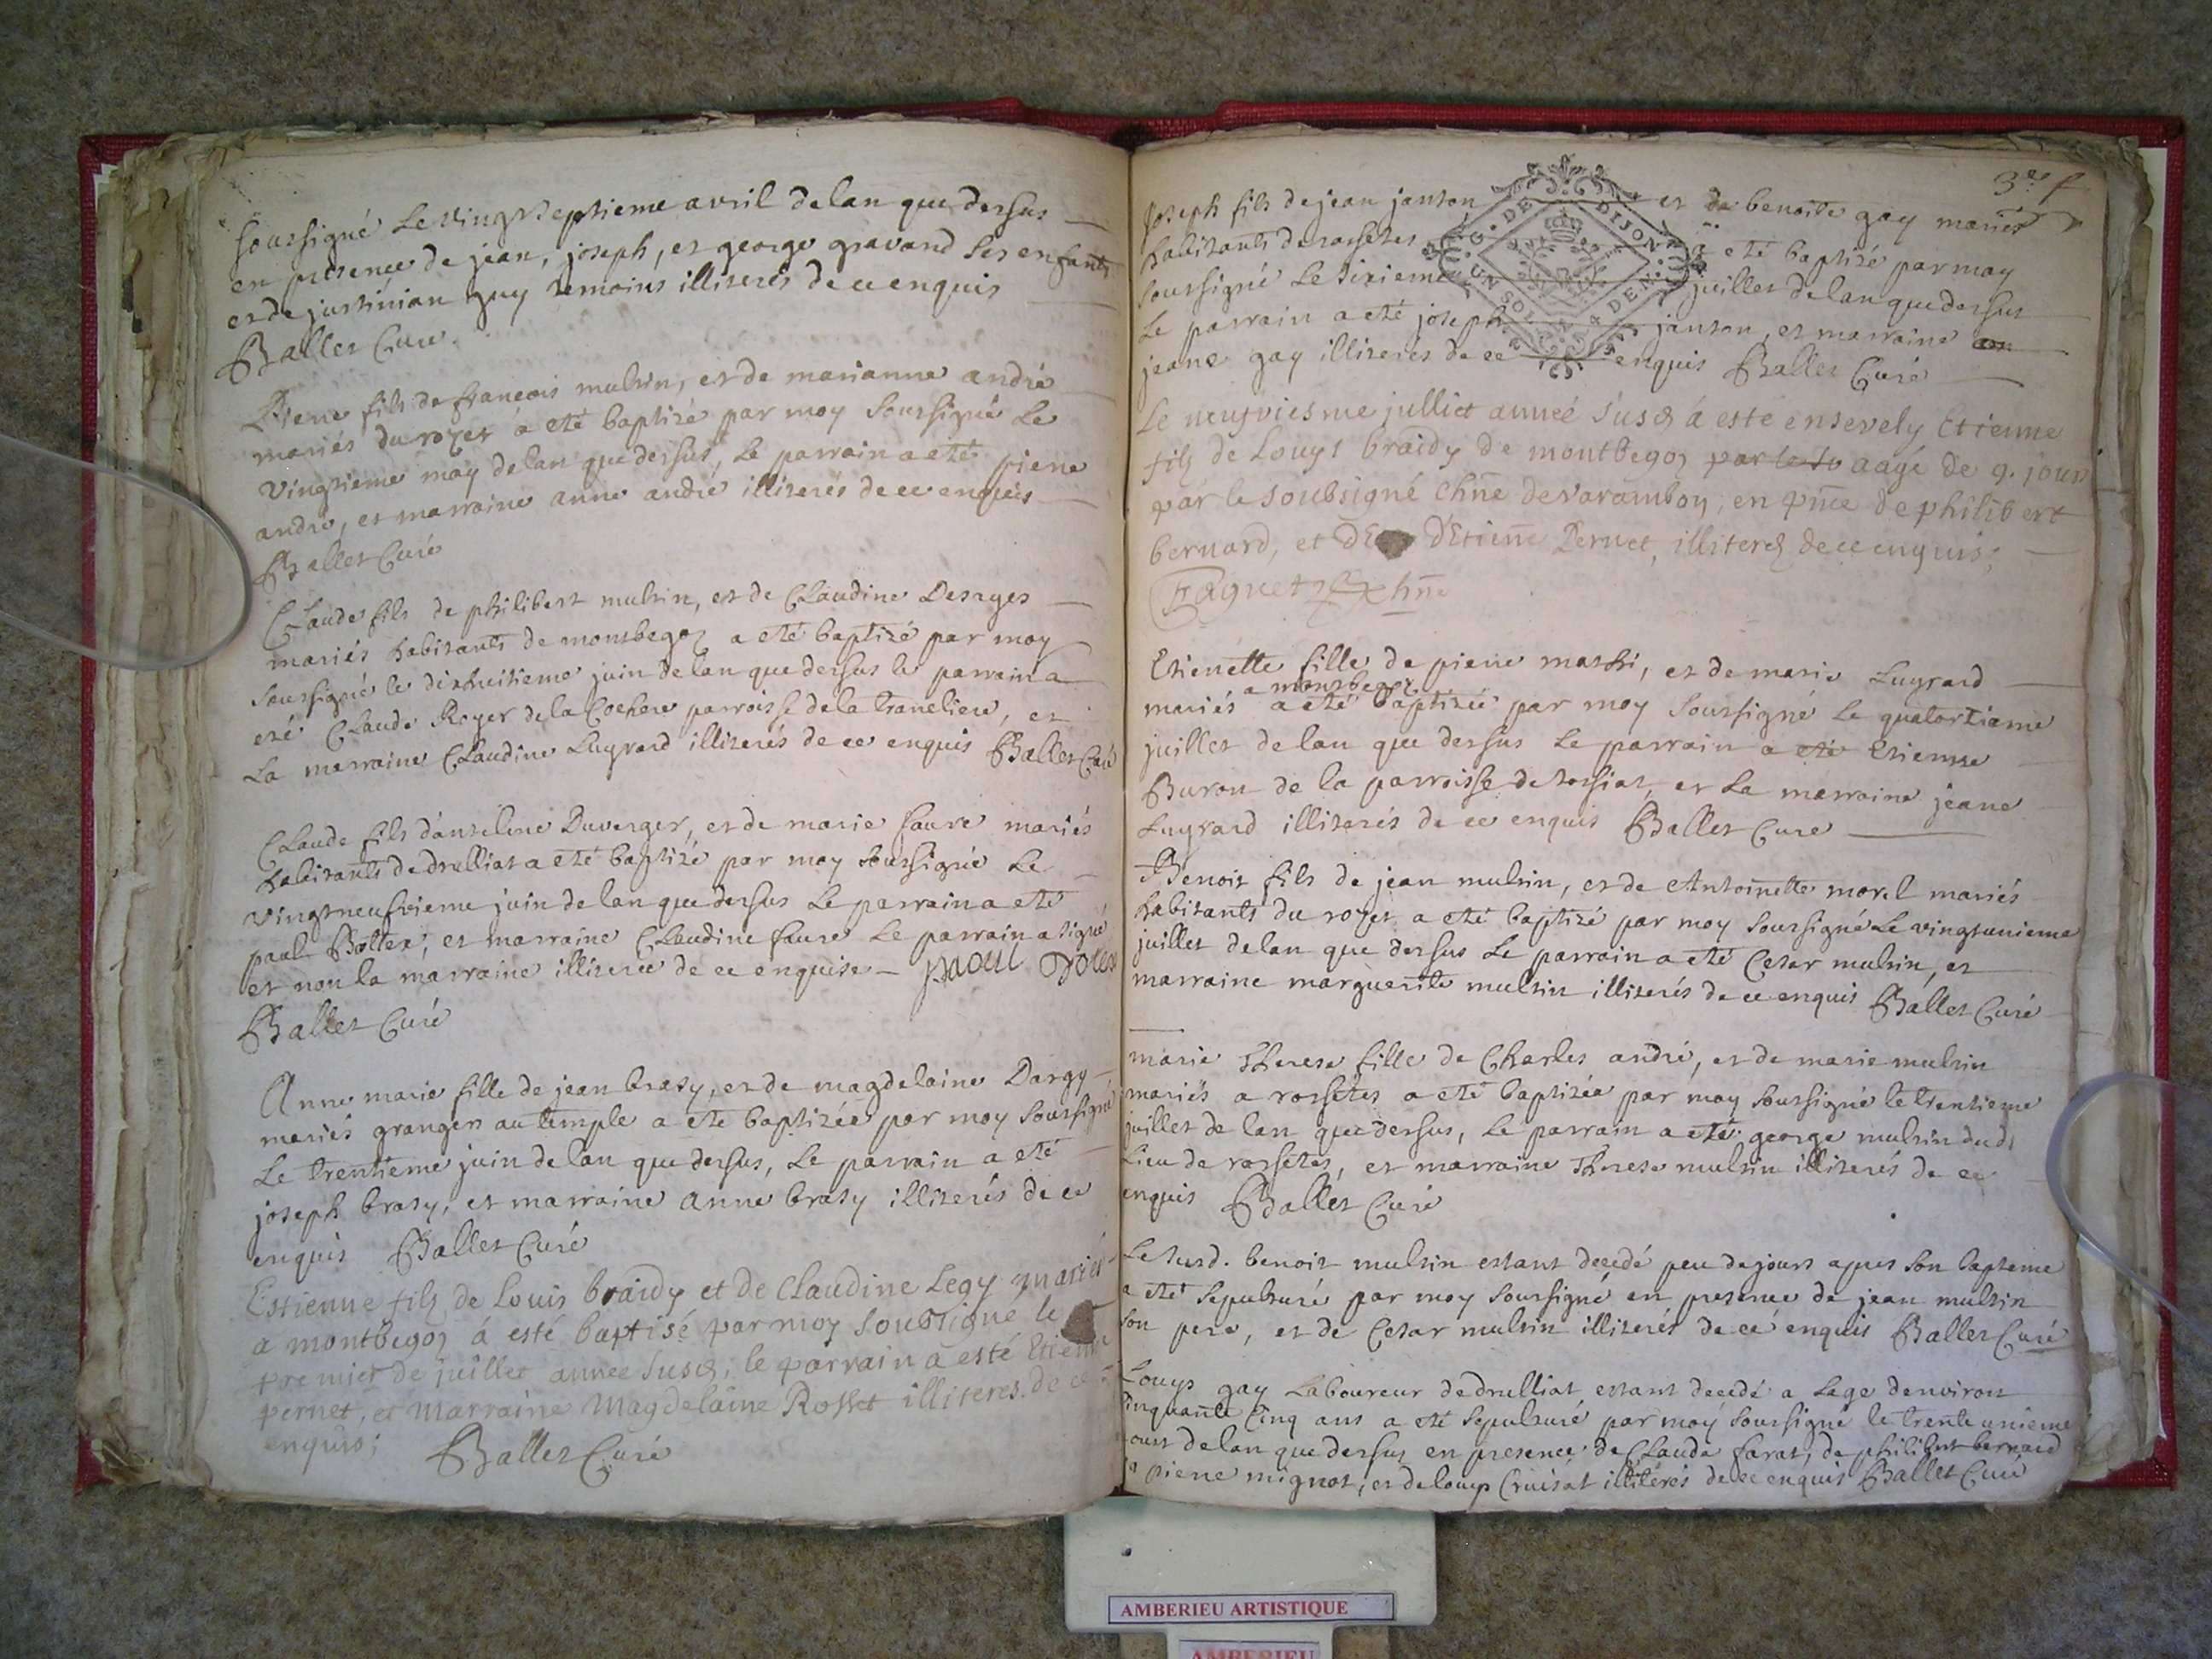 soussigné Le vingtseptieme avril de lan que dessus
en presence de jean, joseph, et george gravand ses enfants
et de justinian guy temoins illiterés de ce enquis
Ballet Curé.
Piere fils de francois multin, et de marianne andré
mariés du royet a eté baptizé par moy soussigné Le
vingtieme may de lan que dessus, Le parrain a eté piere
andré, et marraine anne andré illiterés de ce enquis
Ballet Curé
Claude fils de philibert multin, et de Claudine Desayes
mariés habitants de montbegoz a eté baptizé par moy
soussigné le dixhuitieme juin de lan que dessus le parrain a
eté Claude Royer de la Cochere parroisse de la traneliere, et
La marraine Claudine Luyrard illiterés de ce enquis Ballet Curé
Claude fils d'anteleme Duverger, et de marie faure mariés
habitants de drulliat a eté baptizé par moy soussigné Le
vingtneufvieme juin de lan que dessus Le parrain a eté
paul Bolten, et marraine Claudine faure Le parrain a signé
et non la marraine illiterée de ce enquise
Ballet Curé
Anne marie fille de jean brasy, et de magdelaine Dargy
mariés grangers au temple a eté baptizée par moy soussigné
Le trentieme juin de lan que dessus, Le parrain a eté
joseph brasy, et marraine anne brasy illiterés de ce
enquis Ballet Curé
Estienne filz de Louis braidy et de Claudine Legy mariés
a montbegoz á esté baptisé par moy soubsigné le
premier de juillet annee susd; le parrain á esté Etienne
pernet, et Marraine Magdelaine Rosset illiteres de ce
enquis; Ballet Curé
3e f
Joseph fils de jean janton et de benoite gay mariés
habitants de rossetes a eté baptizé par moy
soussigné Le sixieme juillet de lan que dessus
Le parrain a eté joseph janton, et marraine
jeane gay illiterés de ce enquis Ballet Curé
G. DE DIJON
UN SOL 4 DEN.
Le neufviesme julliet anneé susd á esté ensevely Etienne
filz de Louys braidy de montbegoz par le so aagé de 9. jours
par le soubsigné Chne de varambon, en pnce de philibert
bernard, et d'Etiene Pernet, illiterez de ce enquis;
Faguet Chne
Etienette fille de piere mathi, et de marie Luyrard
mariés a montbegoz a eté baptizée par moy soussigné Le quatortieme
juillet de lan que dessus Le parrain a eté Etienne
Buron de la parroisse de tossiat, et La marraine jeane
Luyrard illiterés de ce enquis Ballet Curé
Benoit fils de jean multin, et de Antoinette morel mariés
habitants du royet a eté baptizé par moy soussigné Le vingtunieme
juillet de lan que dessus Le parrain a eté Cesar multin, et
marraine marguerite multin illiterés de ce enquis Ballet Curé
marie Therese fille de Charles andré, et de marie multin
mariés a rossetes a eté baptizée par moy soussigné le trentieme
juillet de lan que dessus, Le parrain a eté george multin dud.
Lieu de rossetes, et marraine Therese multin illiterés de ce
enquis Ballet Curé
Le susd. benoit multin estant decedé peu de jours apres son bapteme
a eté sepulturé par moy soussigné en presence de jean multin
son pere, et de Cesar multin illiterés de ce enquis Ballet Curé
Louys gay Laboureur de drulliat estant decedé a Lage denviron
Cinquante Cinq ans a eté sepulturé par moy soussigné le trente unieme
oust de lan que dessus en presence de Claude farat, de philibert bernard
piere mignot, et de louys Cruisat illiterés de ce enquis Ballet Curé
AMBERIEU ARTISTIQUE
AMBERIEU